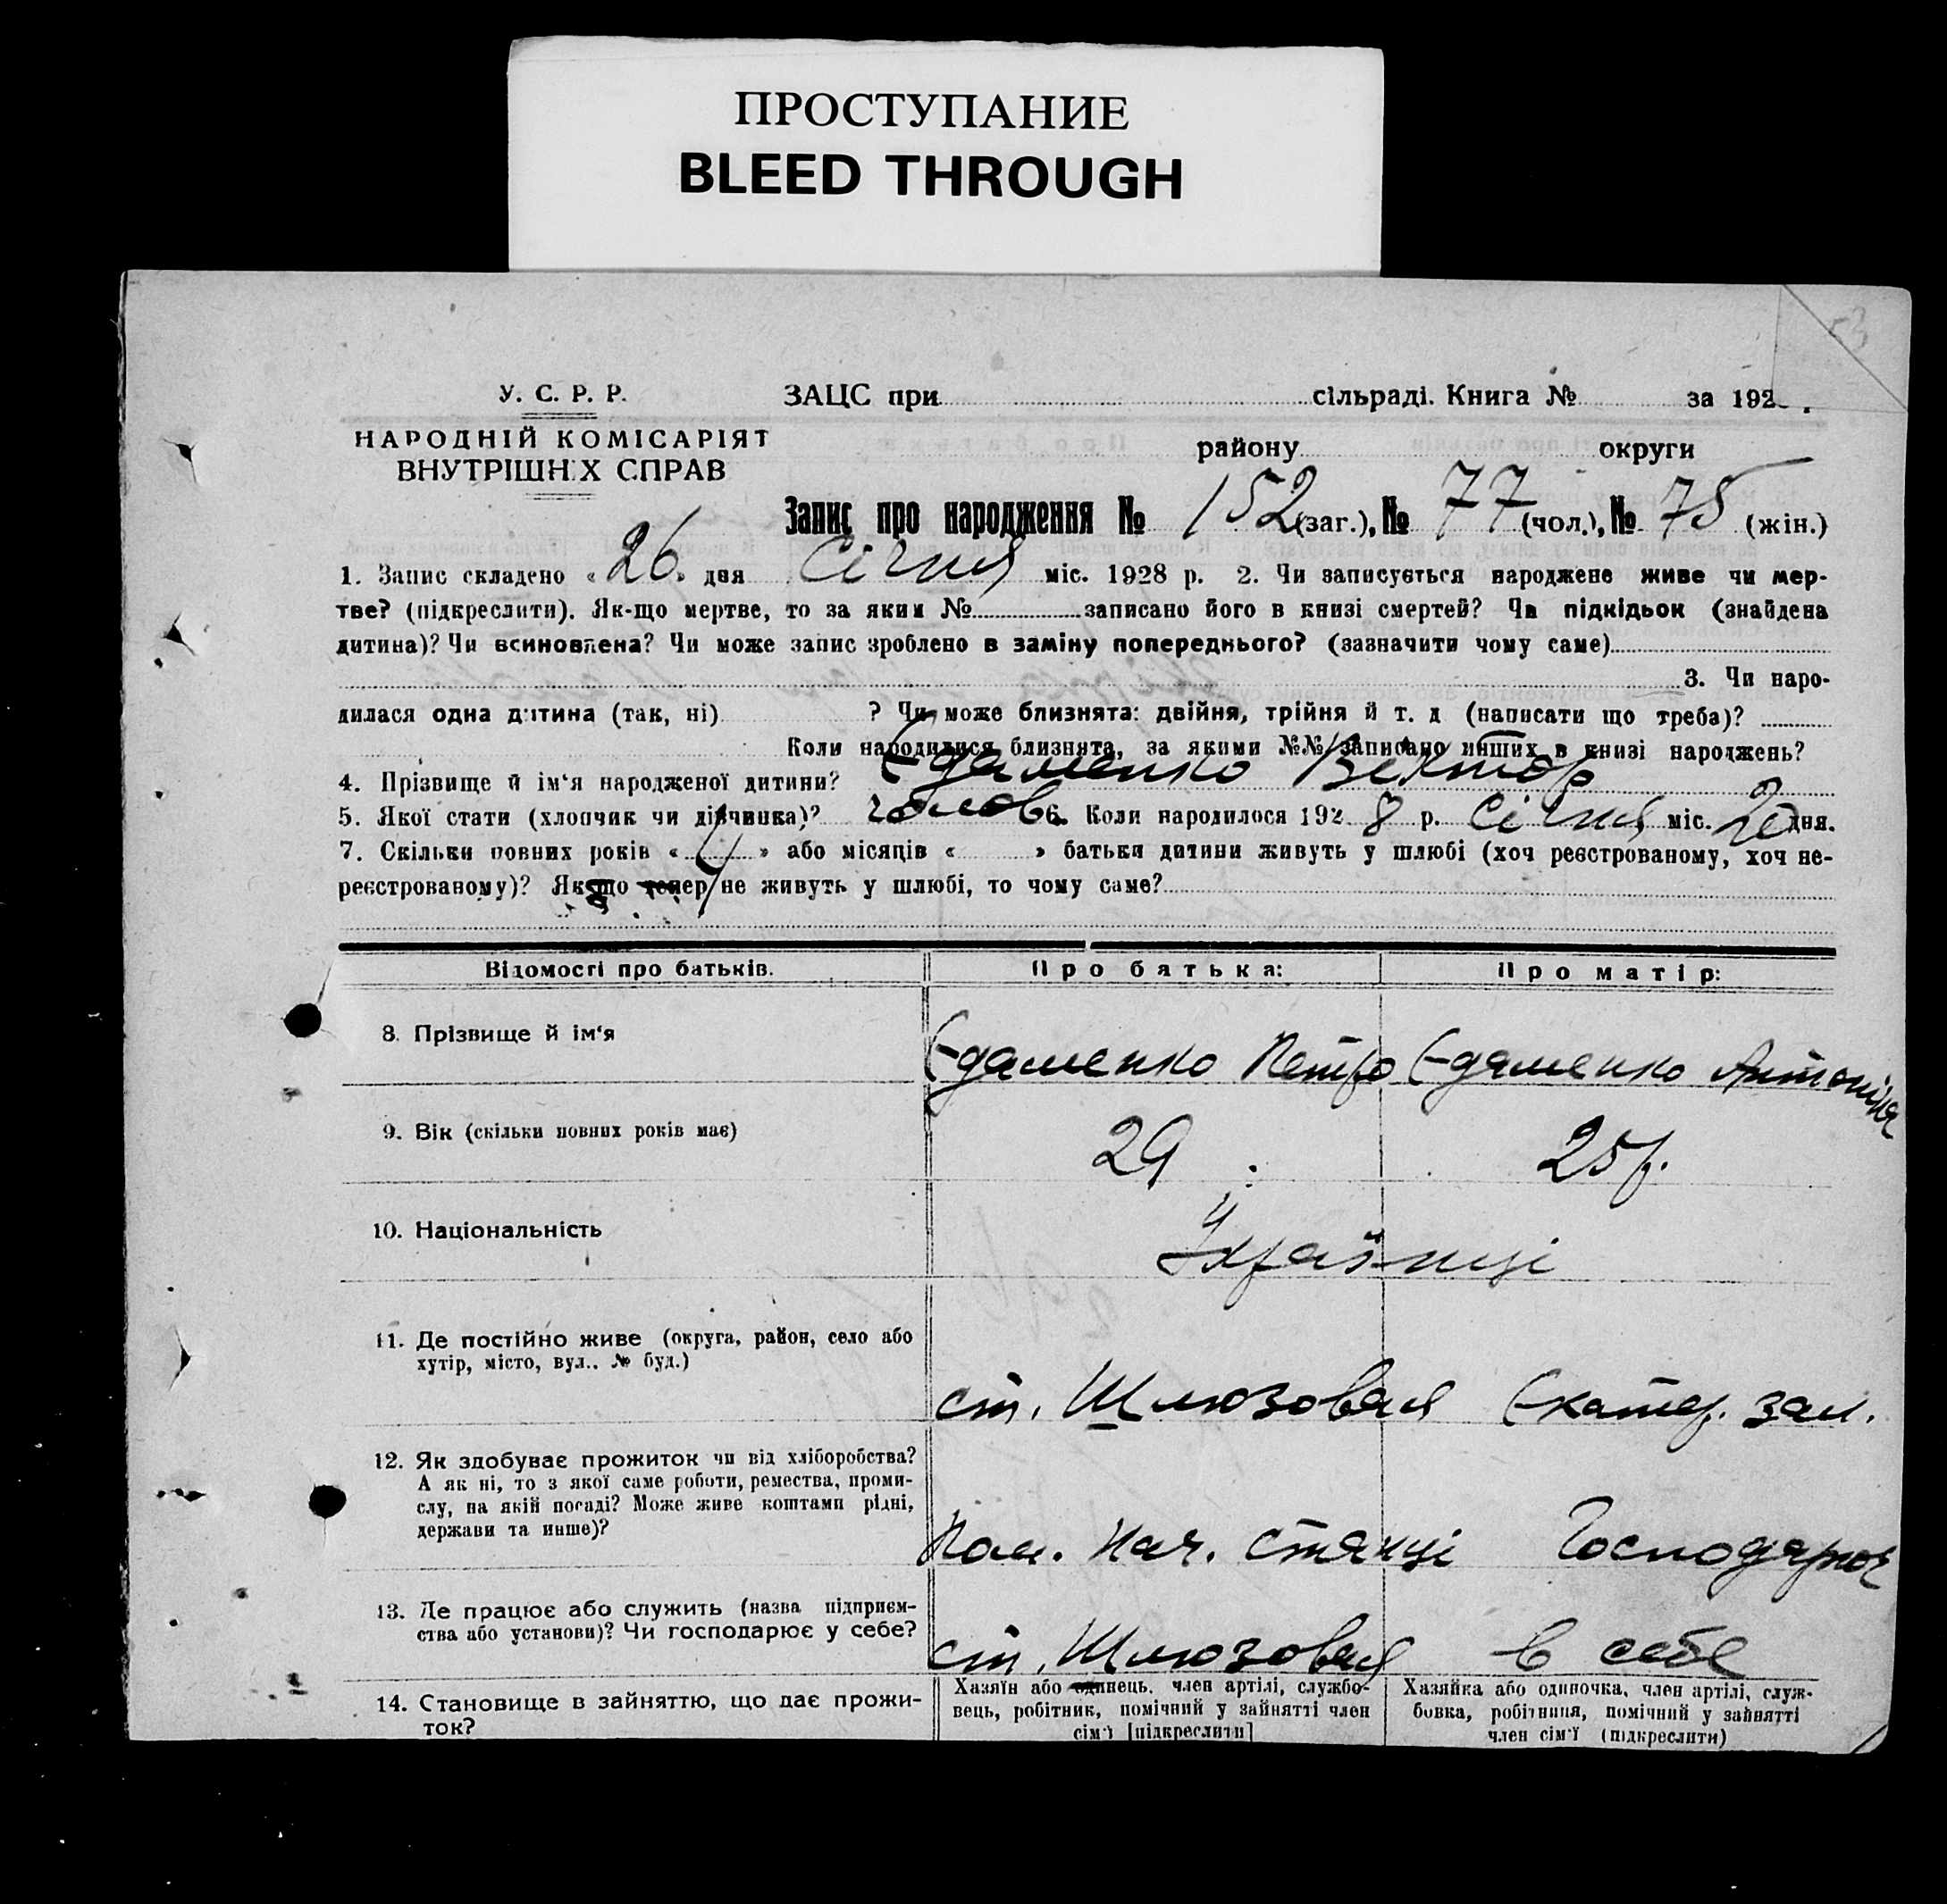 ПРОСТУПАНИЕ
BLEED THROUGH
53
У. С. Р. Р.
ЗАЦС при сільраді. Книга № за 192
НАРОДНІЙ КОМІСАРІЯТ
ВНУТРІШНІХ СПРАВ
району округи
Запис про народження № 152 (заг.), № 77 (чол.), № 75 (жін.)
1. Запис складено «26» дня Січня міс. 1928 р. 2. Чи записується народжене живе чи мер-
тве? (підкреслити). Як-що мертве, то за яким № записано його в книзі смертей? Чи підкідьок (знайдена
дитина)? Чи всиновлена? Чи може запис зроблено в заміну попереднього? (зазначити чому саме)
3. Чи наро-
дилася одна дитина (так, ні) ? Чи може близнята: двійня, трійня й т. д (написати що треба)?
Коли народилися близнята, за якими №№ записано инших в книзі народжень?
4. Прізвище й ім‘я народженої дитини? Єдаменко Віктор
5. Якої стати (хлопчик чи дівчинка)? чолов 6. Коли народилося 1928 р. Січня міс. 20 дня.
7. Скільки повних років « » або місяців « » батьки дитини живуть у шлюбі (хоч реєстрованому, хоч не-
реєстрованому)? Якщо тепер не живуть у шлюбі, то чому саме?
Відомості про батьків. Про батька: Про матір:
8. Прізвище й ім‘я Єдаменко Петро Єдаменко Антоніна
9. Вік (скільки повних років має) 29 25 р.
10. Національність Українці
11. Де постійно живе (округа, район, село або
хутір, місто, вул.. № буд.)
ст. Шлюзовая Екатер. зал.
12. Як здобуває прожиток чи від хліборобства?
А як ні, то з якої саме роботи, ремества, проми-
слу, на якій посаді? Може живе коштами рідні,
держави та инше)?
Пом. Нач. Станці Господарює
13. Де працює або служить (назва підприєм-
ства або установи)? Чи господарює у себе?
ст. Шлюзовая в себе
14. Становище в зайняттю, що дає прожи-
ток?
Хазяїн або одинець, член артілі, службо-
вець, робітник, помічний у зайнятті член
сім'ї [підкреслити]
Хазяйка або одиночка, член артілі, служ-
бовка, робітниця, помічний у зайнятті
член сім'ї (підкреслити)